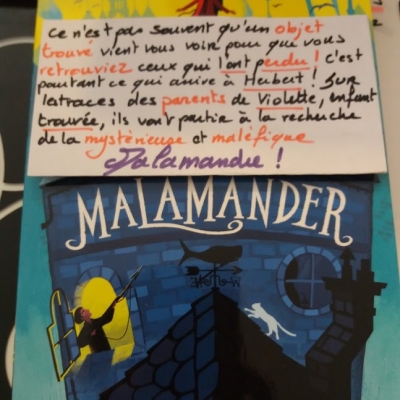 Ce n'est pas souvent qu'un objet
trouvé vient vous voir pour que vous
retrouviez ceux qui l'ont perdu ! C'est
pourtant ce qui arrive à Herbert ! Sur
les traces des parents de Violette, enfant
trouvée, ils vont partir à la recherche
de la mystérieuse et maléfique
Malamandre !
MALAMANDER